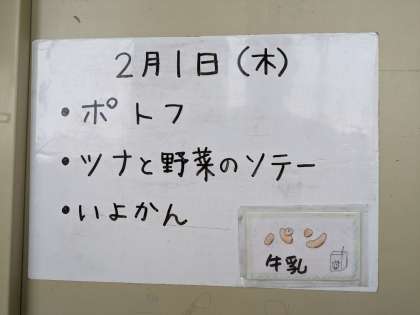 2月1日(木)
・ポトフ
・ツナと野菜のソテー
・いよかん
パン
牛乳